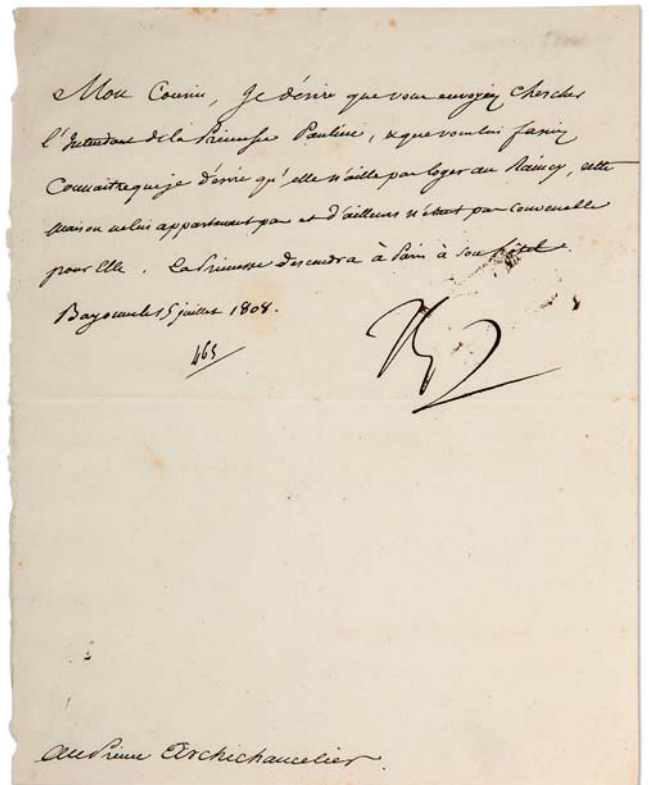 Mon Cousin, Je désire que vous envoyiez chercher
l'Intendant de la Princesse Pauline, & que vous lui fassiez
Connaitre que je désire qu'elle n'aille pas loger au Raincy, cette
maison ne lui appartenant pas et d'ailleurs n'étant pas convenable
pour Elle. La Princesse descendra à Paris à son hôtel.
Bayonne le 15 juillet 1808.
465
Np
Au Prince Archichancelier.